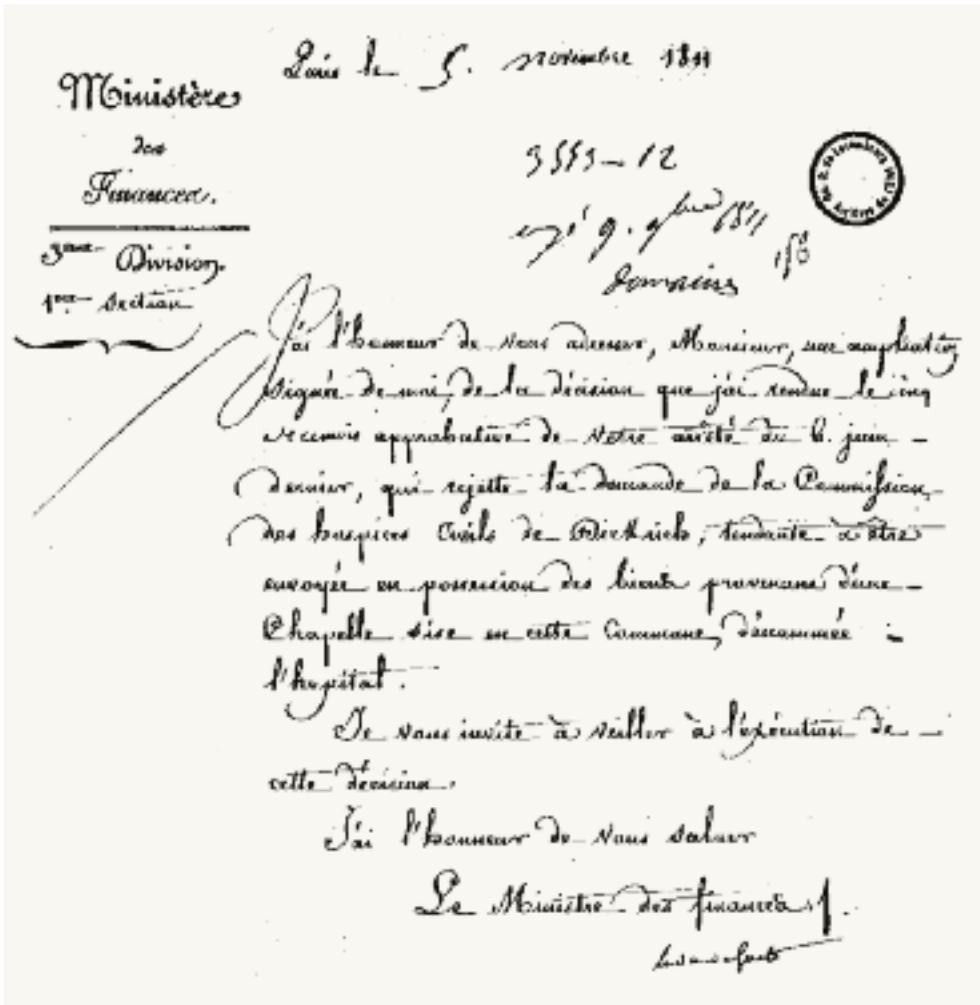 Paris le 5. novembre 1811
Ministère
des
Finances.
3eme Division.
1ere Section
3553-12
9. 9bre 1811
Domaines
J'ai l'honneur de vous adresser, Monsieur, une ampliation
signée de moi, de la décision que j'ai rendue le cinq
de ce mois approbative de votre arrêté du 6. juin
dernier, qui rejette la demande de la Commission
des hospices Civils de Diekirch, tendante à être
envoyée en possession des biens provenans d'une
Chapelle sise en cette Commune, dénommée
l'hopital.
Je vous invite à veiller à l'exécution de
cette décision.
J'ai l'honneur de vous saluer
Le Ministre des finances